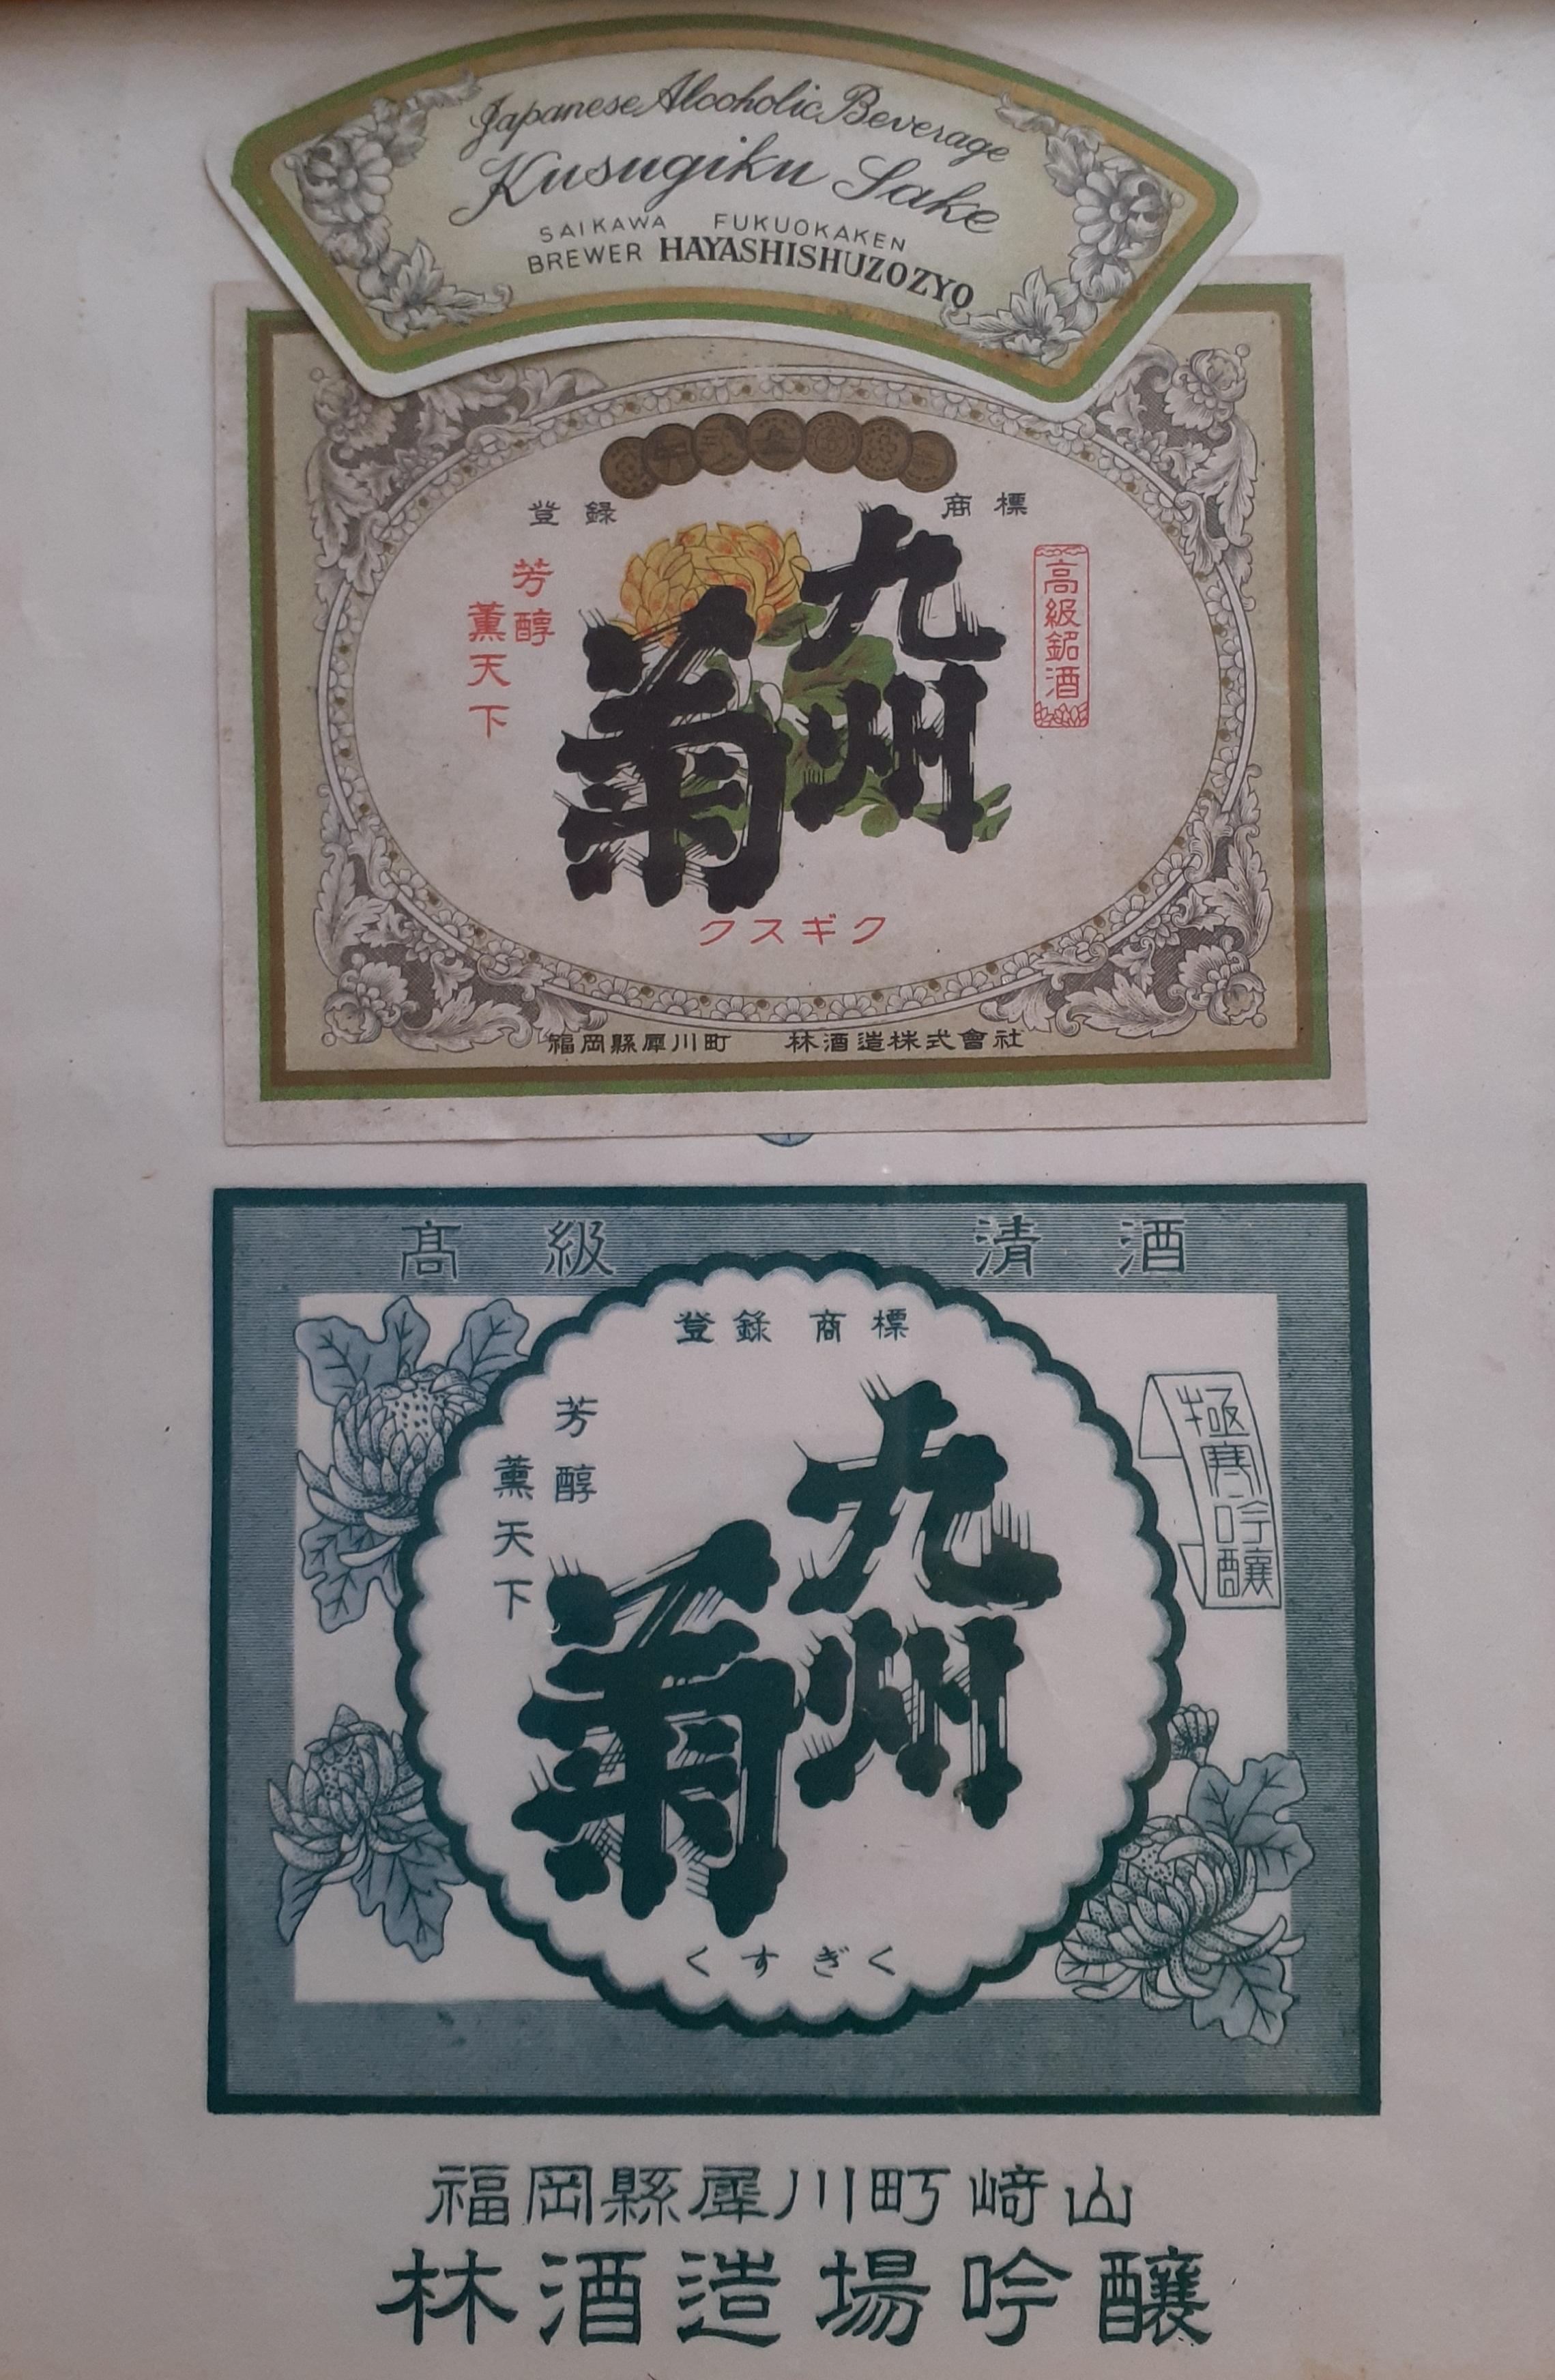 Japanese Alcoholic Beverage
Kusugiku Sake
SAIKAWA FUKUOKAKEN
BREWER HAYASHISHUZOZYO
登録 商標
高級銘酒
九州
菊
芳醇
薫天下
クスギク
福岡縣犀川町 林酒造株式會社
髙級 清酒
登録 商標
極寒吟釀
九州
菊
芳醇
薫天下
くすぎく
福岡縣犀川町﨑山
林酒造場吟釀